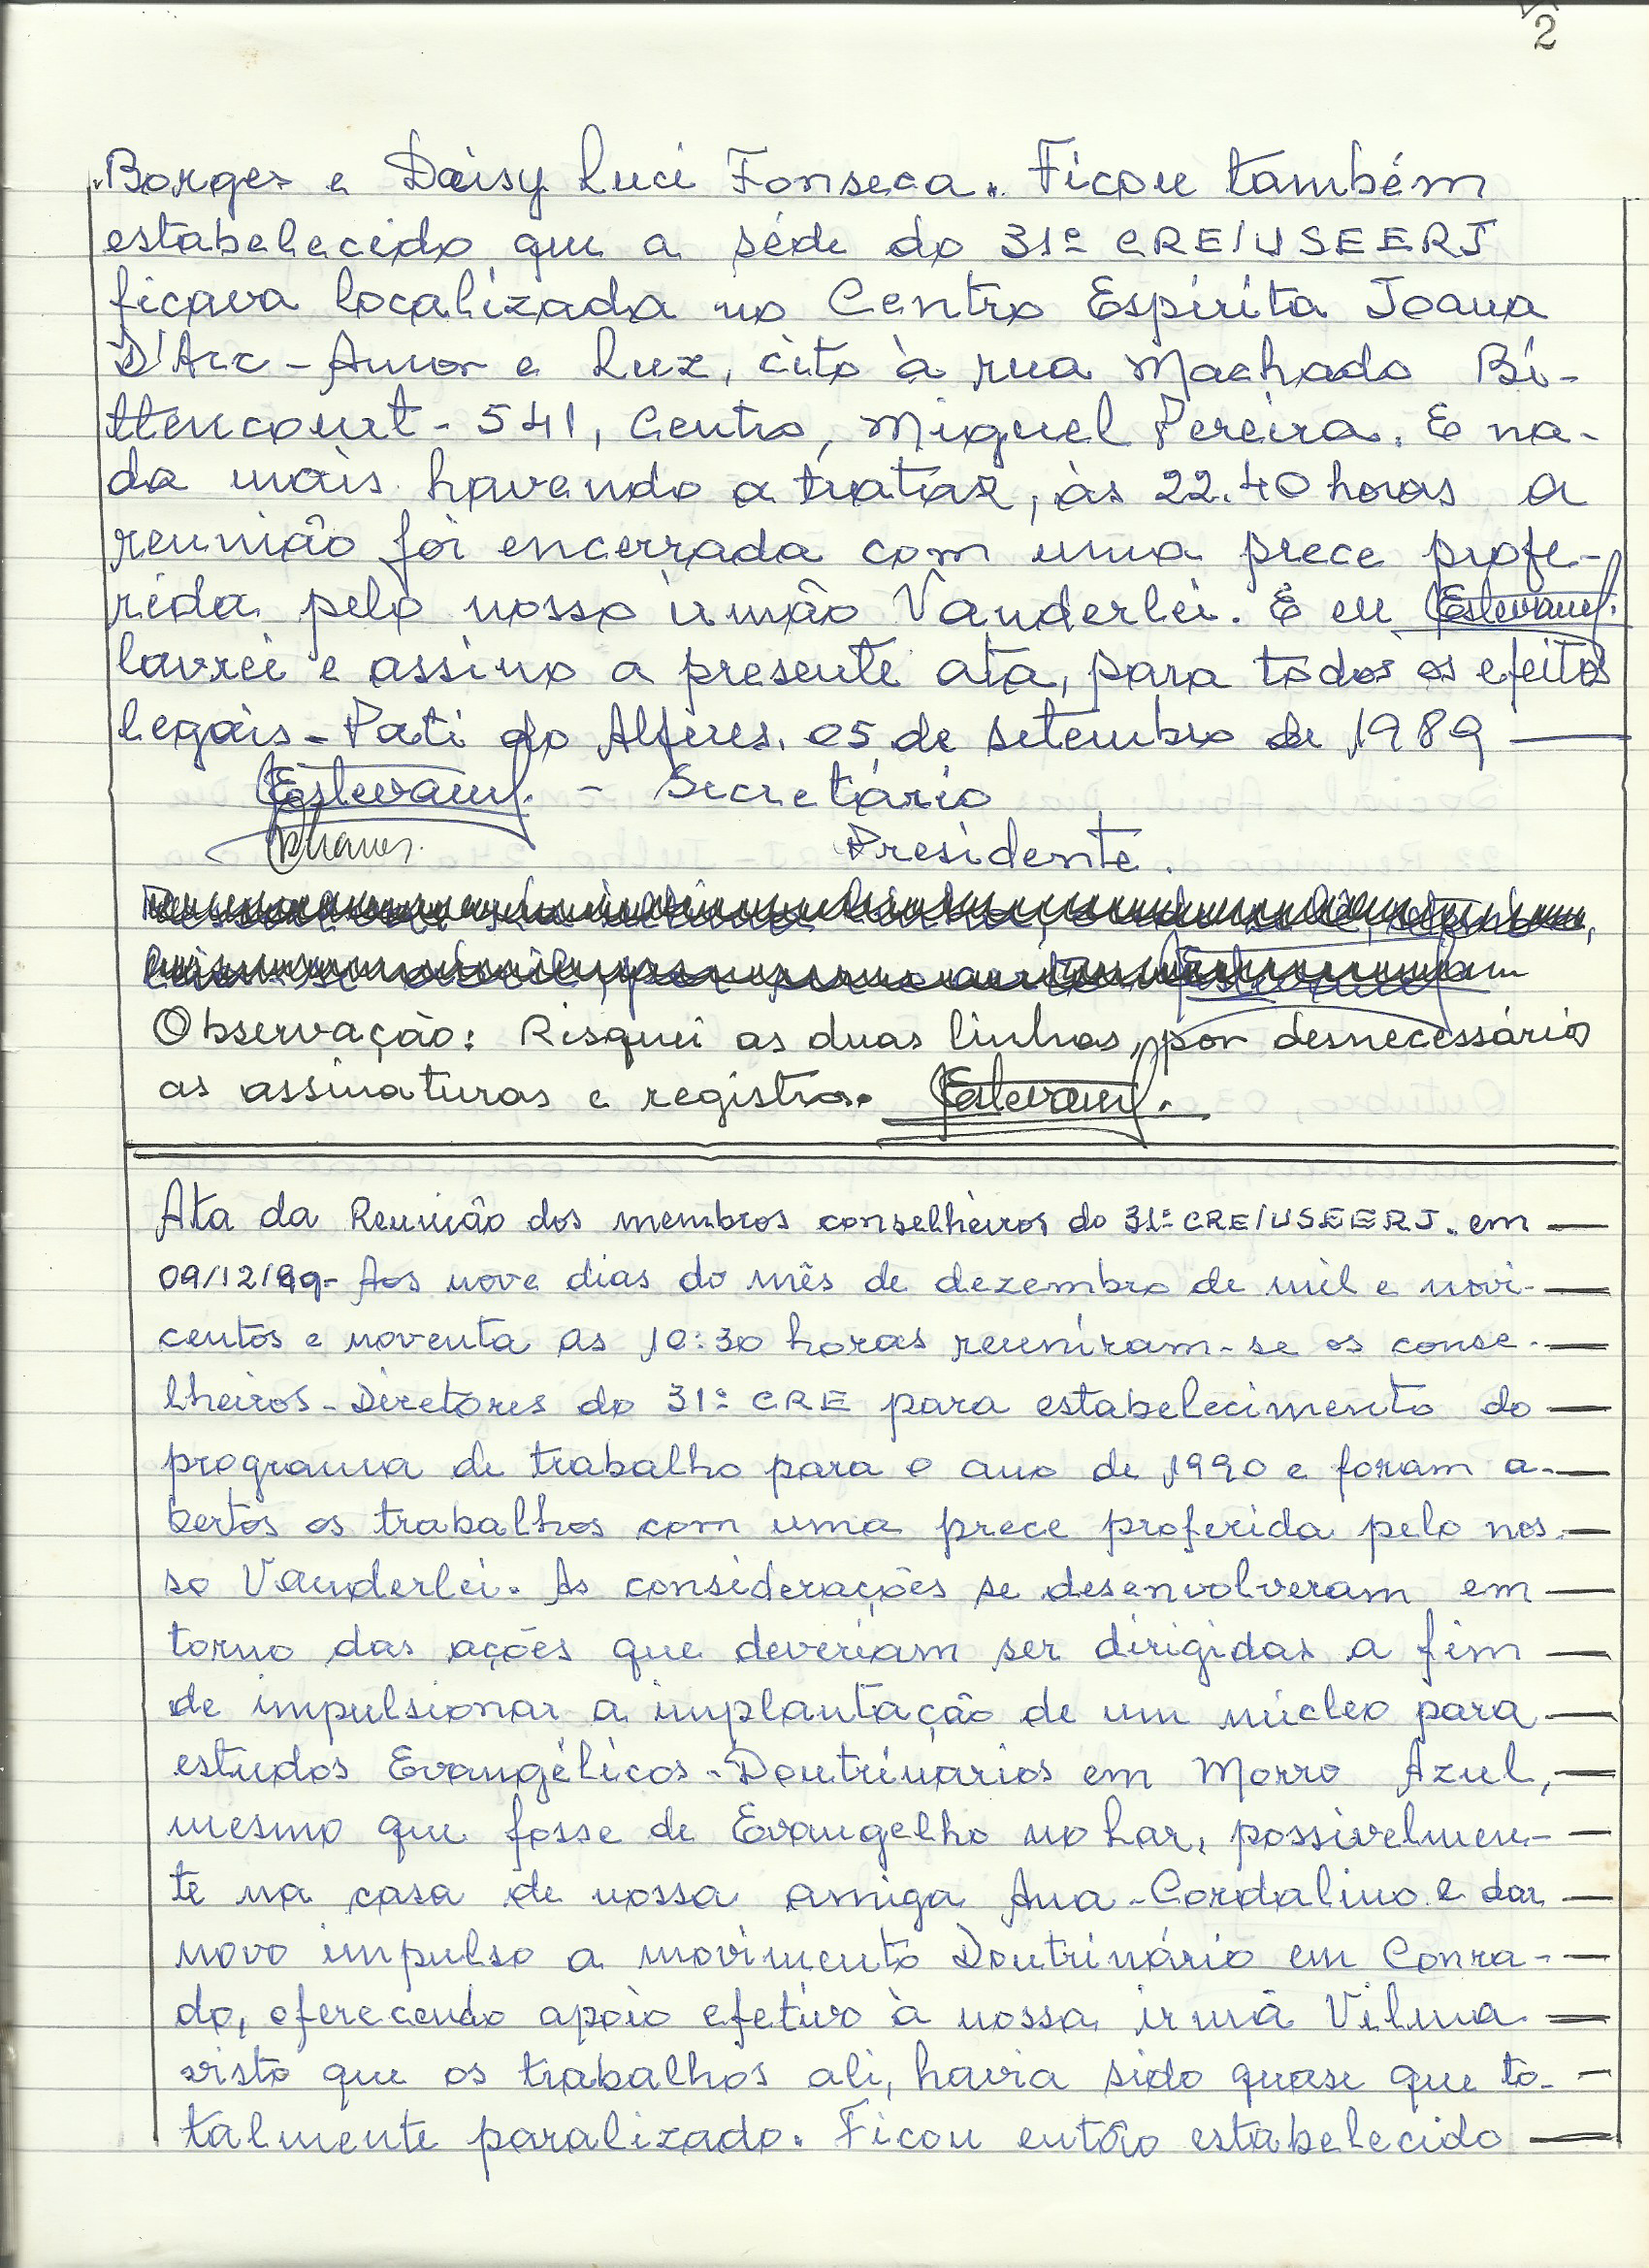 2
Borges e Daisy Luci Fonseca. Ficou também
estabelecido que a séde do 31º CRE/USEERJ
ficava localizada no Centro Espírita Joana
D'Arc - Amor e Luz, cito à rua Machado Bi-
ttencourt - 541, Centro, Miguel Pereira. E na-
da mais havendo a tratar, às 22.40 horas a
reunião foi encerrada com uma prece profe-
rida pelo nosso irmão Vanderlei. E eu Estevam
lavrei e assino a presente ata, para todos os efeitos
legais - Pati do Alferes, 05 de setembro de 1989
Estevam - Secretário
Presidente.
Observação: Risquei as duas linhas, por desnecessário
as assinaturas e registro. Estevam
Ata da Reunião dos membros conselheiros do 31º CRE/USEERJ. em
09/12/89- Aos nove dias do mês de dezembro de mil e novi-
centos e noventa as 10:30 horas reuniram-se os conse-
lheiros-Diretores do 31º CRE para estabelecimento do
programa de trabalho para o ano de 1990 e foram a-
bertos os trabalhos com uma prece proferida pelo nos-
so Vanderlei. As considerações se desenvolveram em
torno das ações que deveriam ser dirigidas a fim
de impulsionar a implantação de um núcleo para
estudos Evangélicos-Doutrinários em Morro Azul,
mesmo que fosse de Evangelho no Lar, possivelmen-
te na casa de nossa amiga Ana-Cordalino e dar
novo impulso a movimento Doutrinário em Conra-
do, oferecendo apoio efetivo à nossa irmã Vilma
visto que os trabalhos ali, havia sido quase que to-
talmente paralizado. Ficou então estabelecido